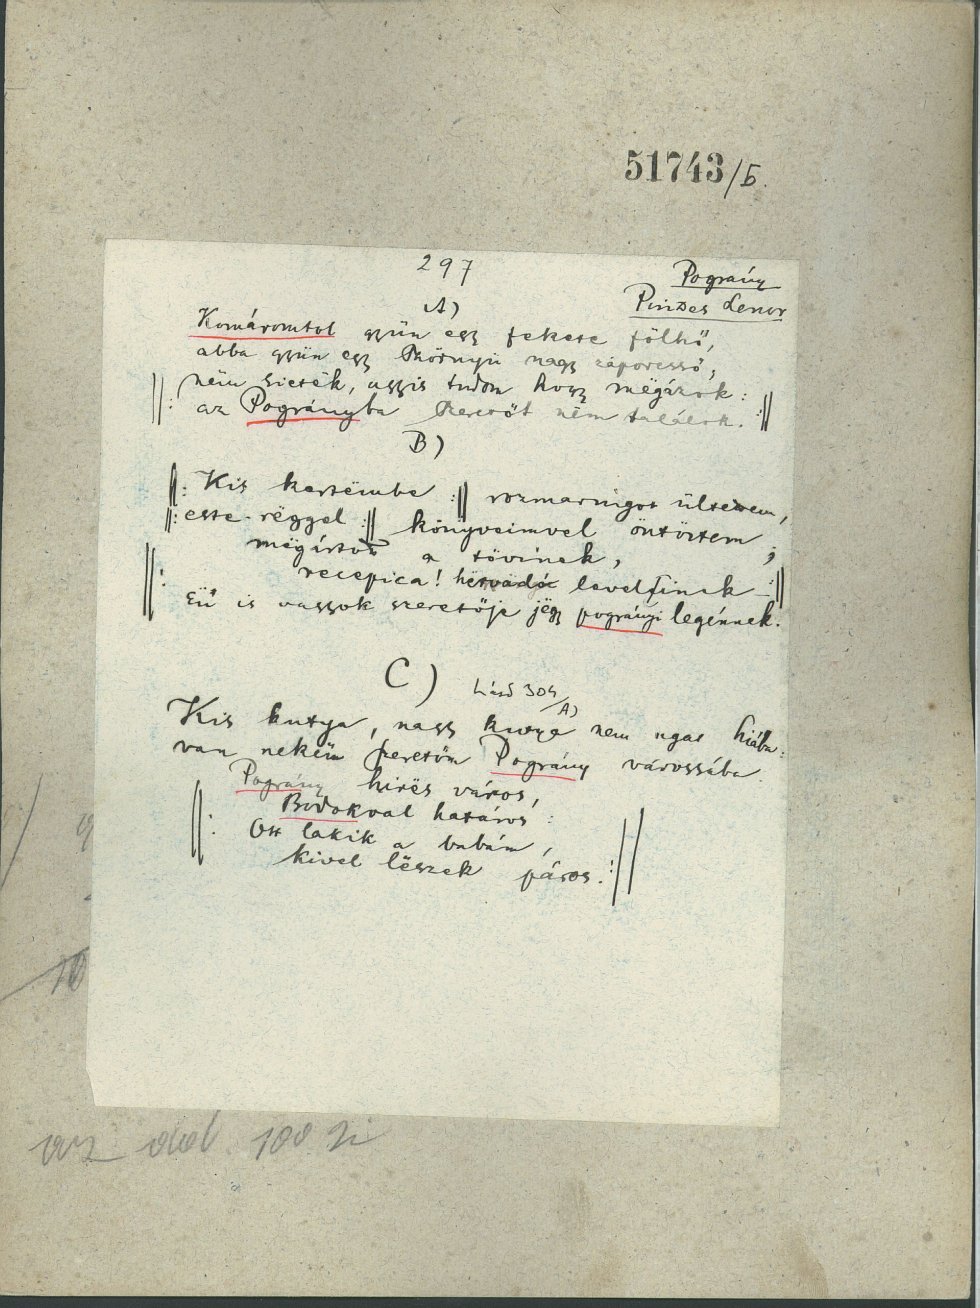 51743/b.
297
Pográny
Pinzes Lenor
A)
Komáromtol gyün egy fekete fölhő,
abba gyün egy környü nagy záporesső,
||: nëm sieték, uggyis tudom hogy mëgázok :
az Pogrányba szeretőt nëm találok. :||
B)
||: Kis kertëmbe :|| rozmaringot ültettem,
||: este-rëggel :|| könyveimvel öntöztem ;
||: mëgártok a tövinek,
recepica! hërvadó levelfinek :||
Eü is vagyok szeretője jëgy pogrányi legénnek.
C)
Lásd 304/A)
Kis kutya, nagy kutya nem ugat hiába:
van nekëm szeretöm Pográny várossába.
||: Pográny hirës város,
Bodokval határos :
Ott lakik a babám,
kivel lëszek páros. :||
10
az dal 100